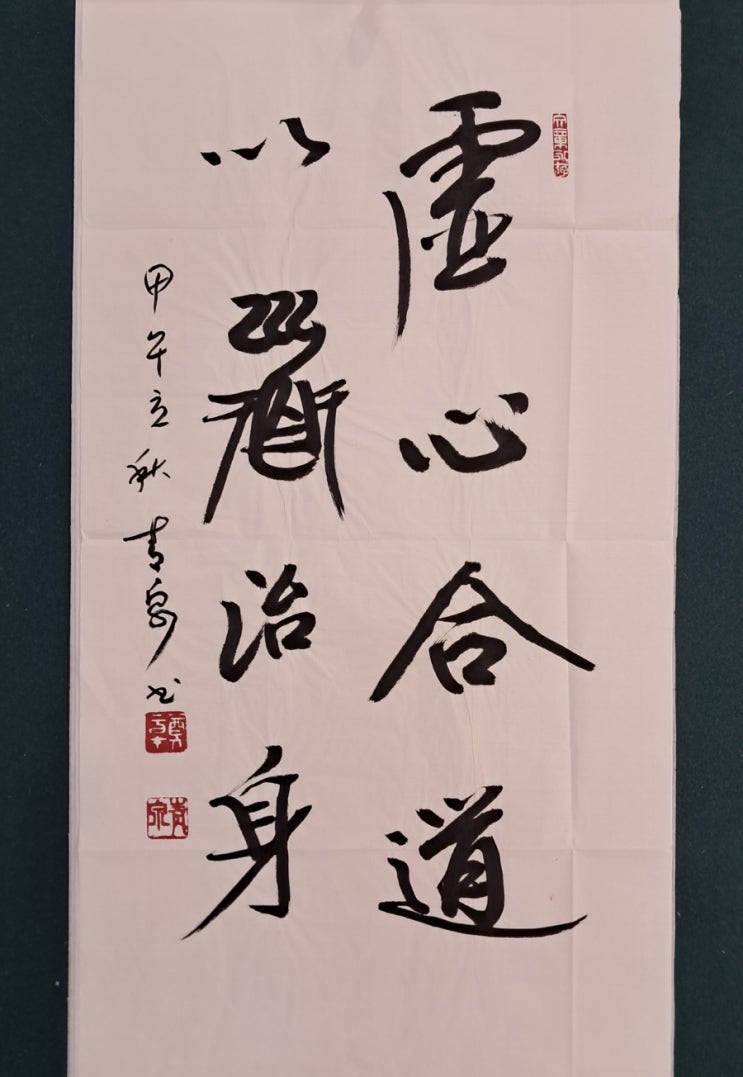 虚心合道
以衟治身
甲午立秋青泉书